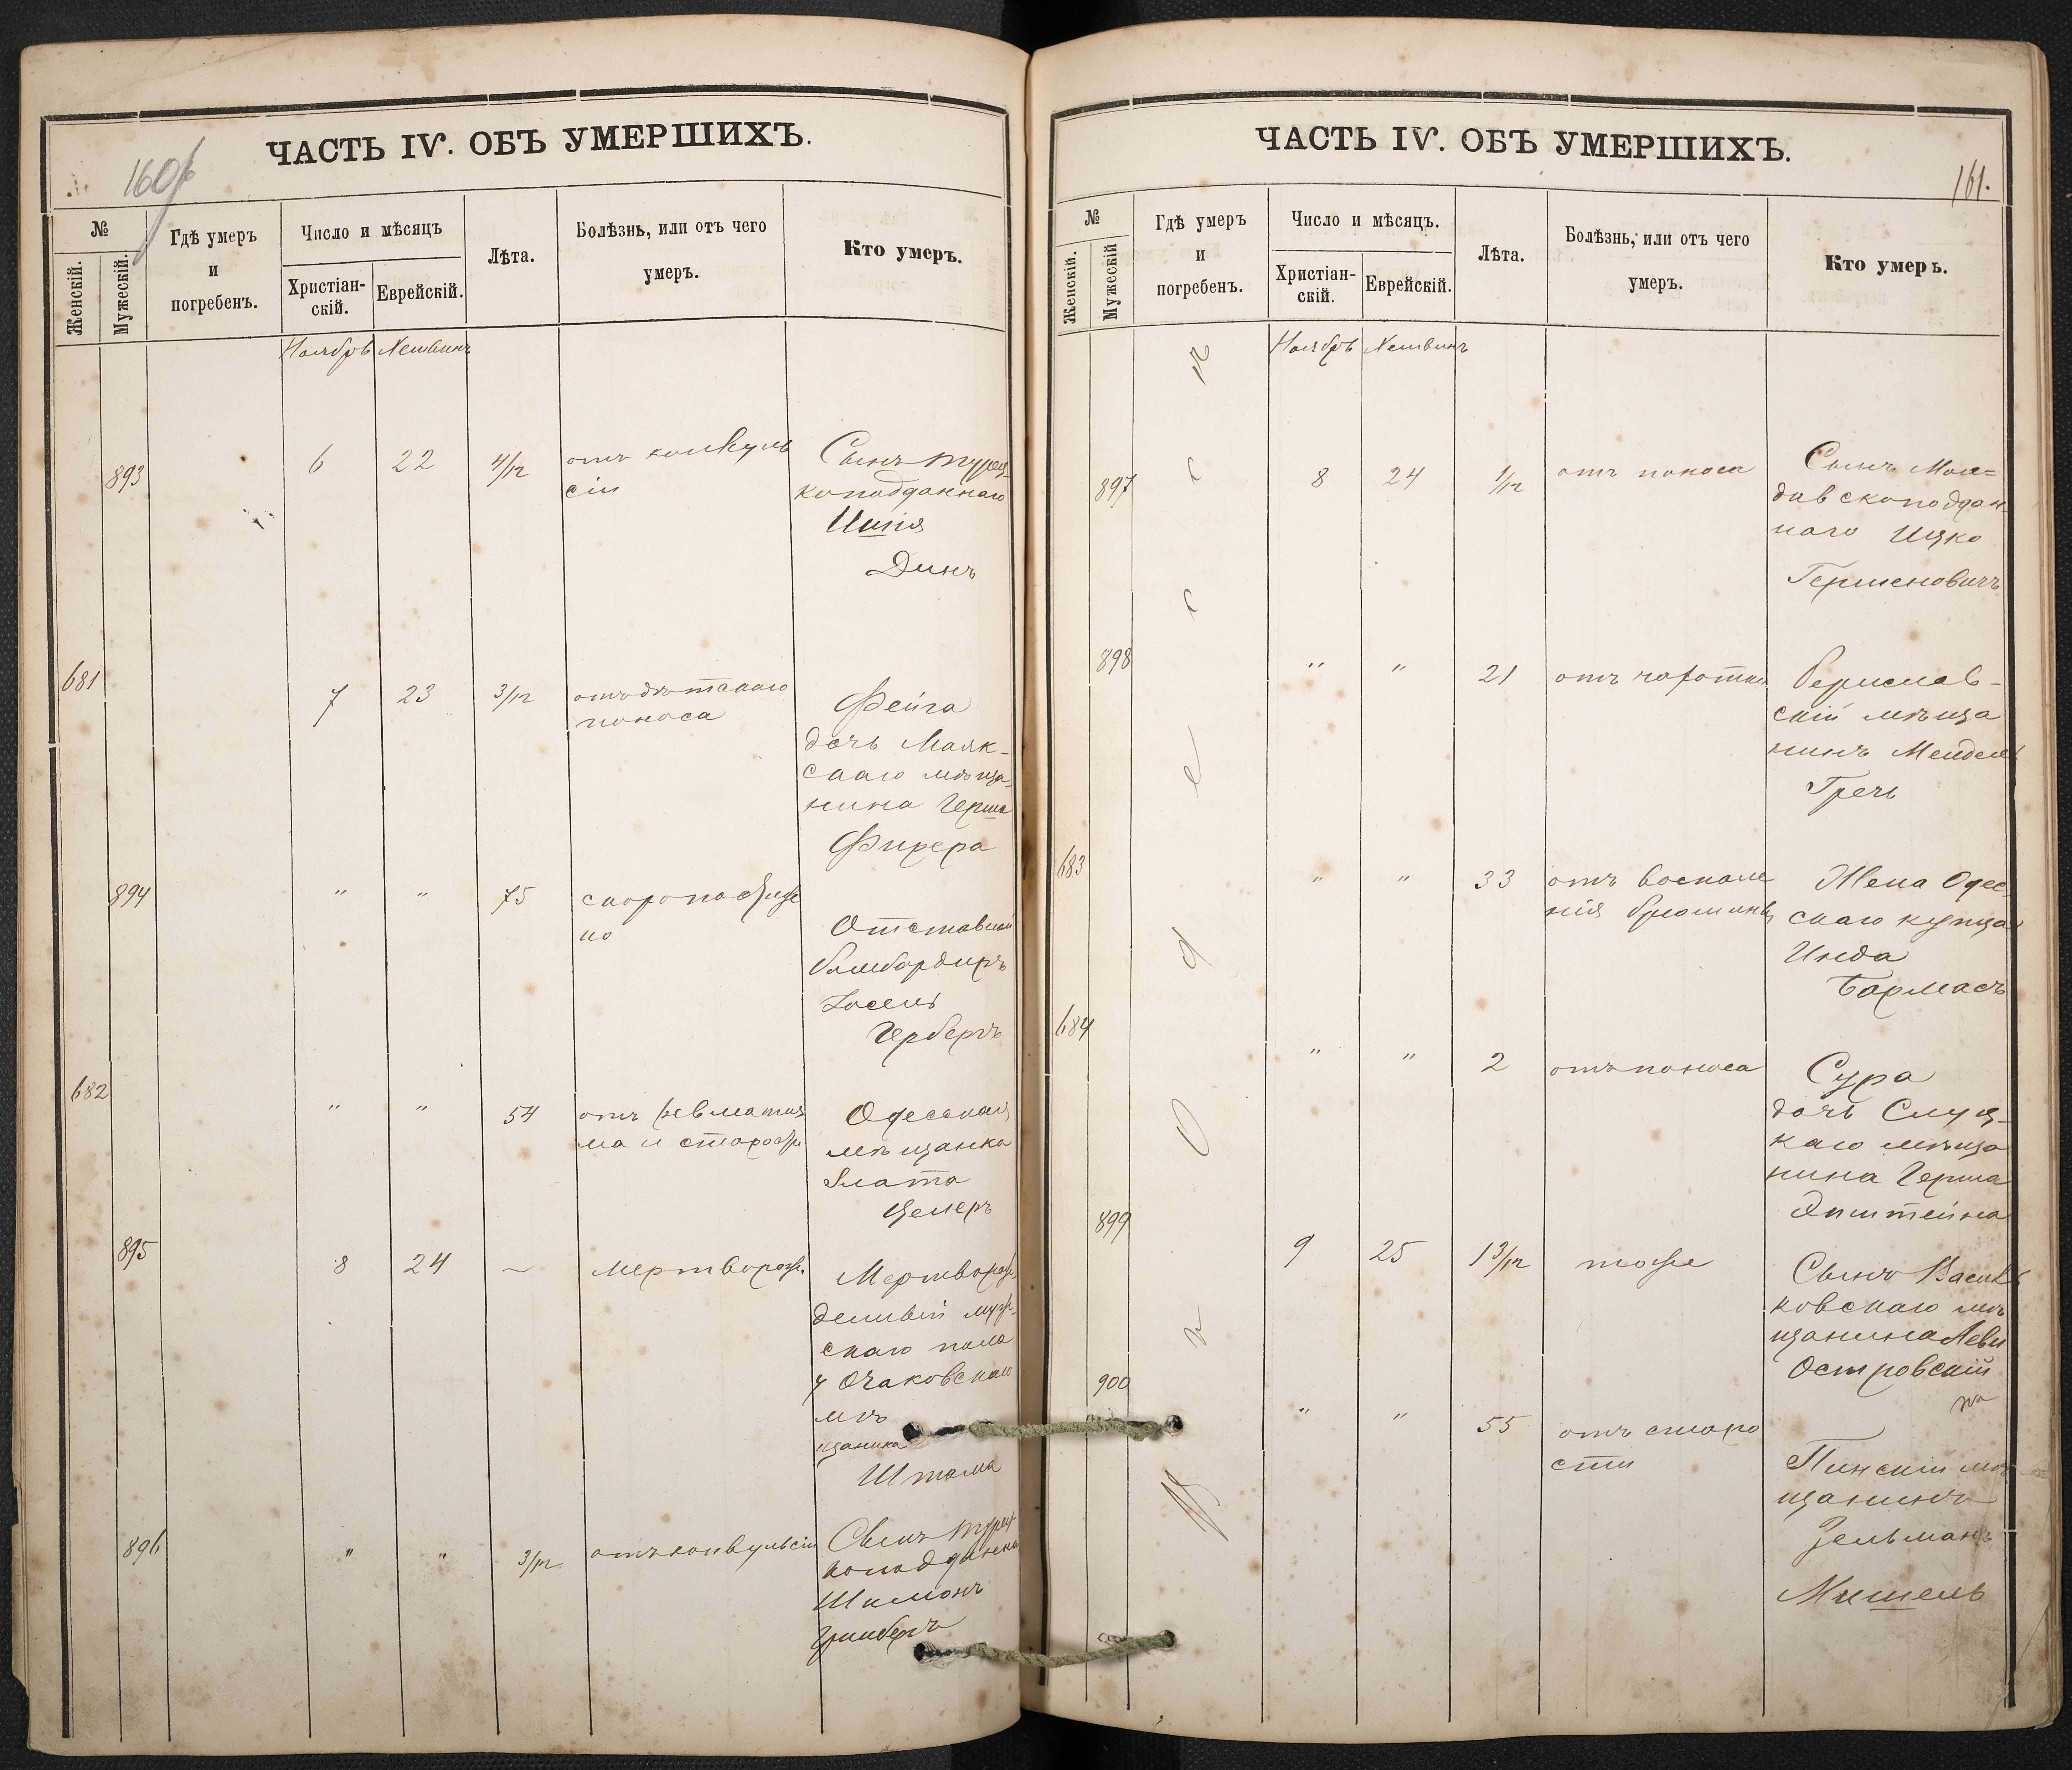 ЧАСТЬ IV. ОБЪ УМЕРШИХЪ.
160об
№
Женскій.
Мужескій.
Гдѣ умеръ
и
погребенъ.
Число и мѣсяцъ
Христіан-
скій.
Еврейскій.
Лѣта.
Болѣзнь, или отъ чего
умеръ.
Кто умеръ.
Ноябрь Хешвинъ
893 6 22 4/12
отъ конвуль
сіи
Сынъ турец
коподданнаго
Динъ
681 7 23 3/12
отъ дѣтскаго
поноса
Фейга
дочь Маяк-
скаго мѣща
нина Герша
Фихера
894 " " 75
скоропостиж
но
Отставной
бомбардиръ
Іосель
Герберъ
682 " " 54
отъ ревматиз
ма и старости
Одесская
мѣщанка
Злата
Целеръ
895 8 24 –
Мертворож.
Мертворож
денный муж-
скаго пола
у Очаковскаго
мѣ
щанина
Штама
896 " " 3/12
отъ конвульсіи
Сынъ турец
коподданна
Шимонъ
Гринберъ
ЧАСТЬ IV. ОБЪ УМЕРШИХЪ.
161.
№
Женскій.
Мужескій
Гдѣ умеръ
и
погребенъ.
Число и мѣсяцъ.
Христіан-
скій.
Еврейскій.
Лѣта.
Болѣзнь, или отъ чего
умеръ.
Кто умеръ.
Ноябрь Хешвинъ
въ Одессѣ
897 8 24 1/12
отъ поноса
Сынъ Мол=
давскоподдан
наго Ицко
Гершеновичъ
898 " " 21
отъ чахотки
Берислав-
скій мѣща
нинъ Мендель
Гречь
683 " " 33
отъ воспале
нія брюшины
Жена Одес
скаго купца
Инда
Бармасъ
684 " " 2
отъ поноса
Сура
дочь Слуц-
каго мѣща
нина Герша
Эпштейна
899 9 25 1 3/12
тоже
Сынъ Василь
ковскаго мѣ
щанина Леви
Островскій
900 " " 55
отъ старо
сти
Пинскій мѣ
щанинъ
Зельманъ
Мишель